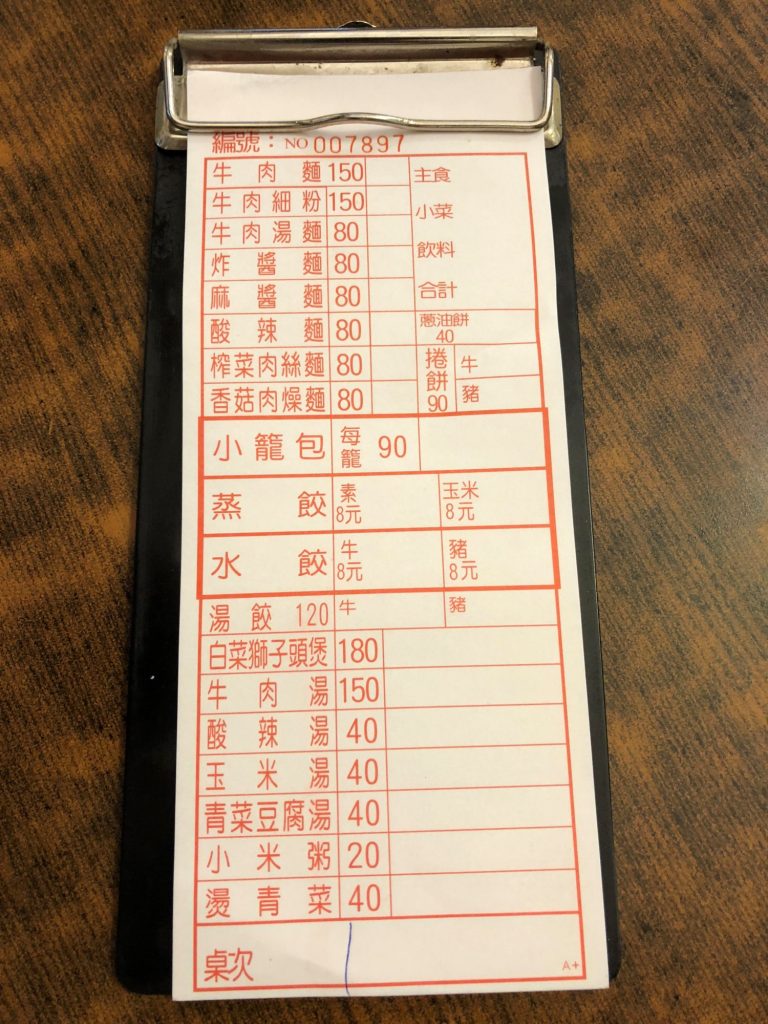 編號：NO 007897
牛肉麵 150
牛肉細粉 150
牛肉湯麵 80
炸醬麵 80
麻醬麵 80
酸辣麵 80
榨菜肉絲麵 80
香菇肉燥麵 80
主食
小菜
飲料
合計
蔥油餅
40
捲餅 90
牛
豬
小籠包 每籠 90
蒸餃 素 8元 玉米 8元
水餃 牛 8元 豬 8元
湯餃 120 牛 豬
白菜獅子頭煲 180
牛肉湯 150
酸辣湯 40
玉米湯 40
青菜豆腐湯 40
小米粥 20
燙青菜 40
桌次
A+